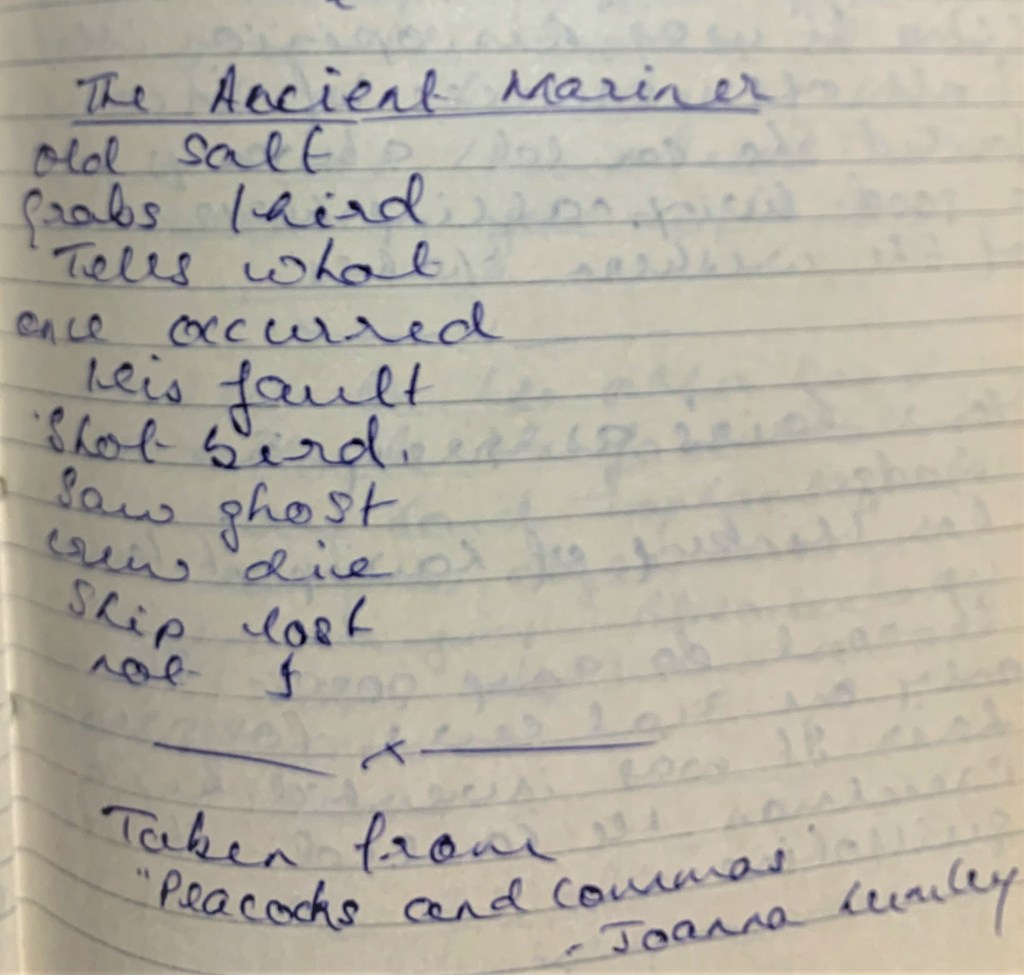 The Ancient Mariner
old salt
Grabs third
Tells what
once occurred
His fault
Shot bird.
Saw ghost
crew die
Ship lost
not I
x
Taken from
"Peacocks and commas
- Joanna Lumley